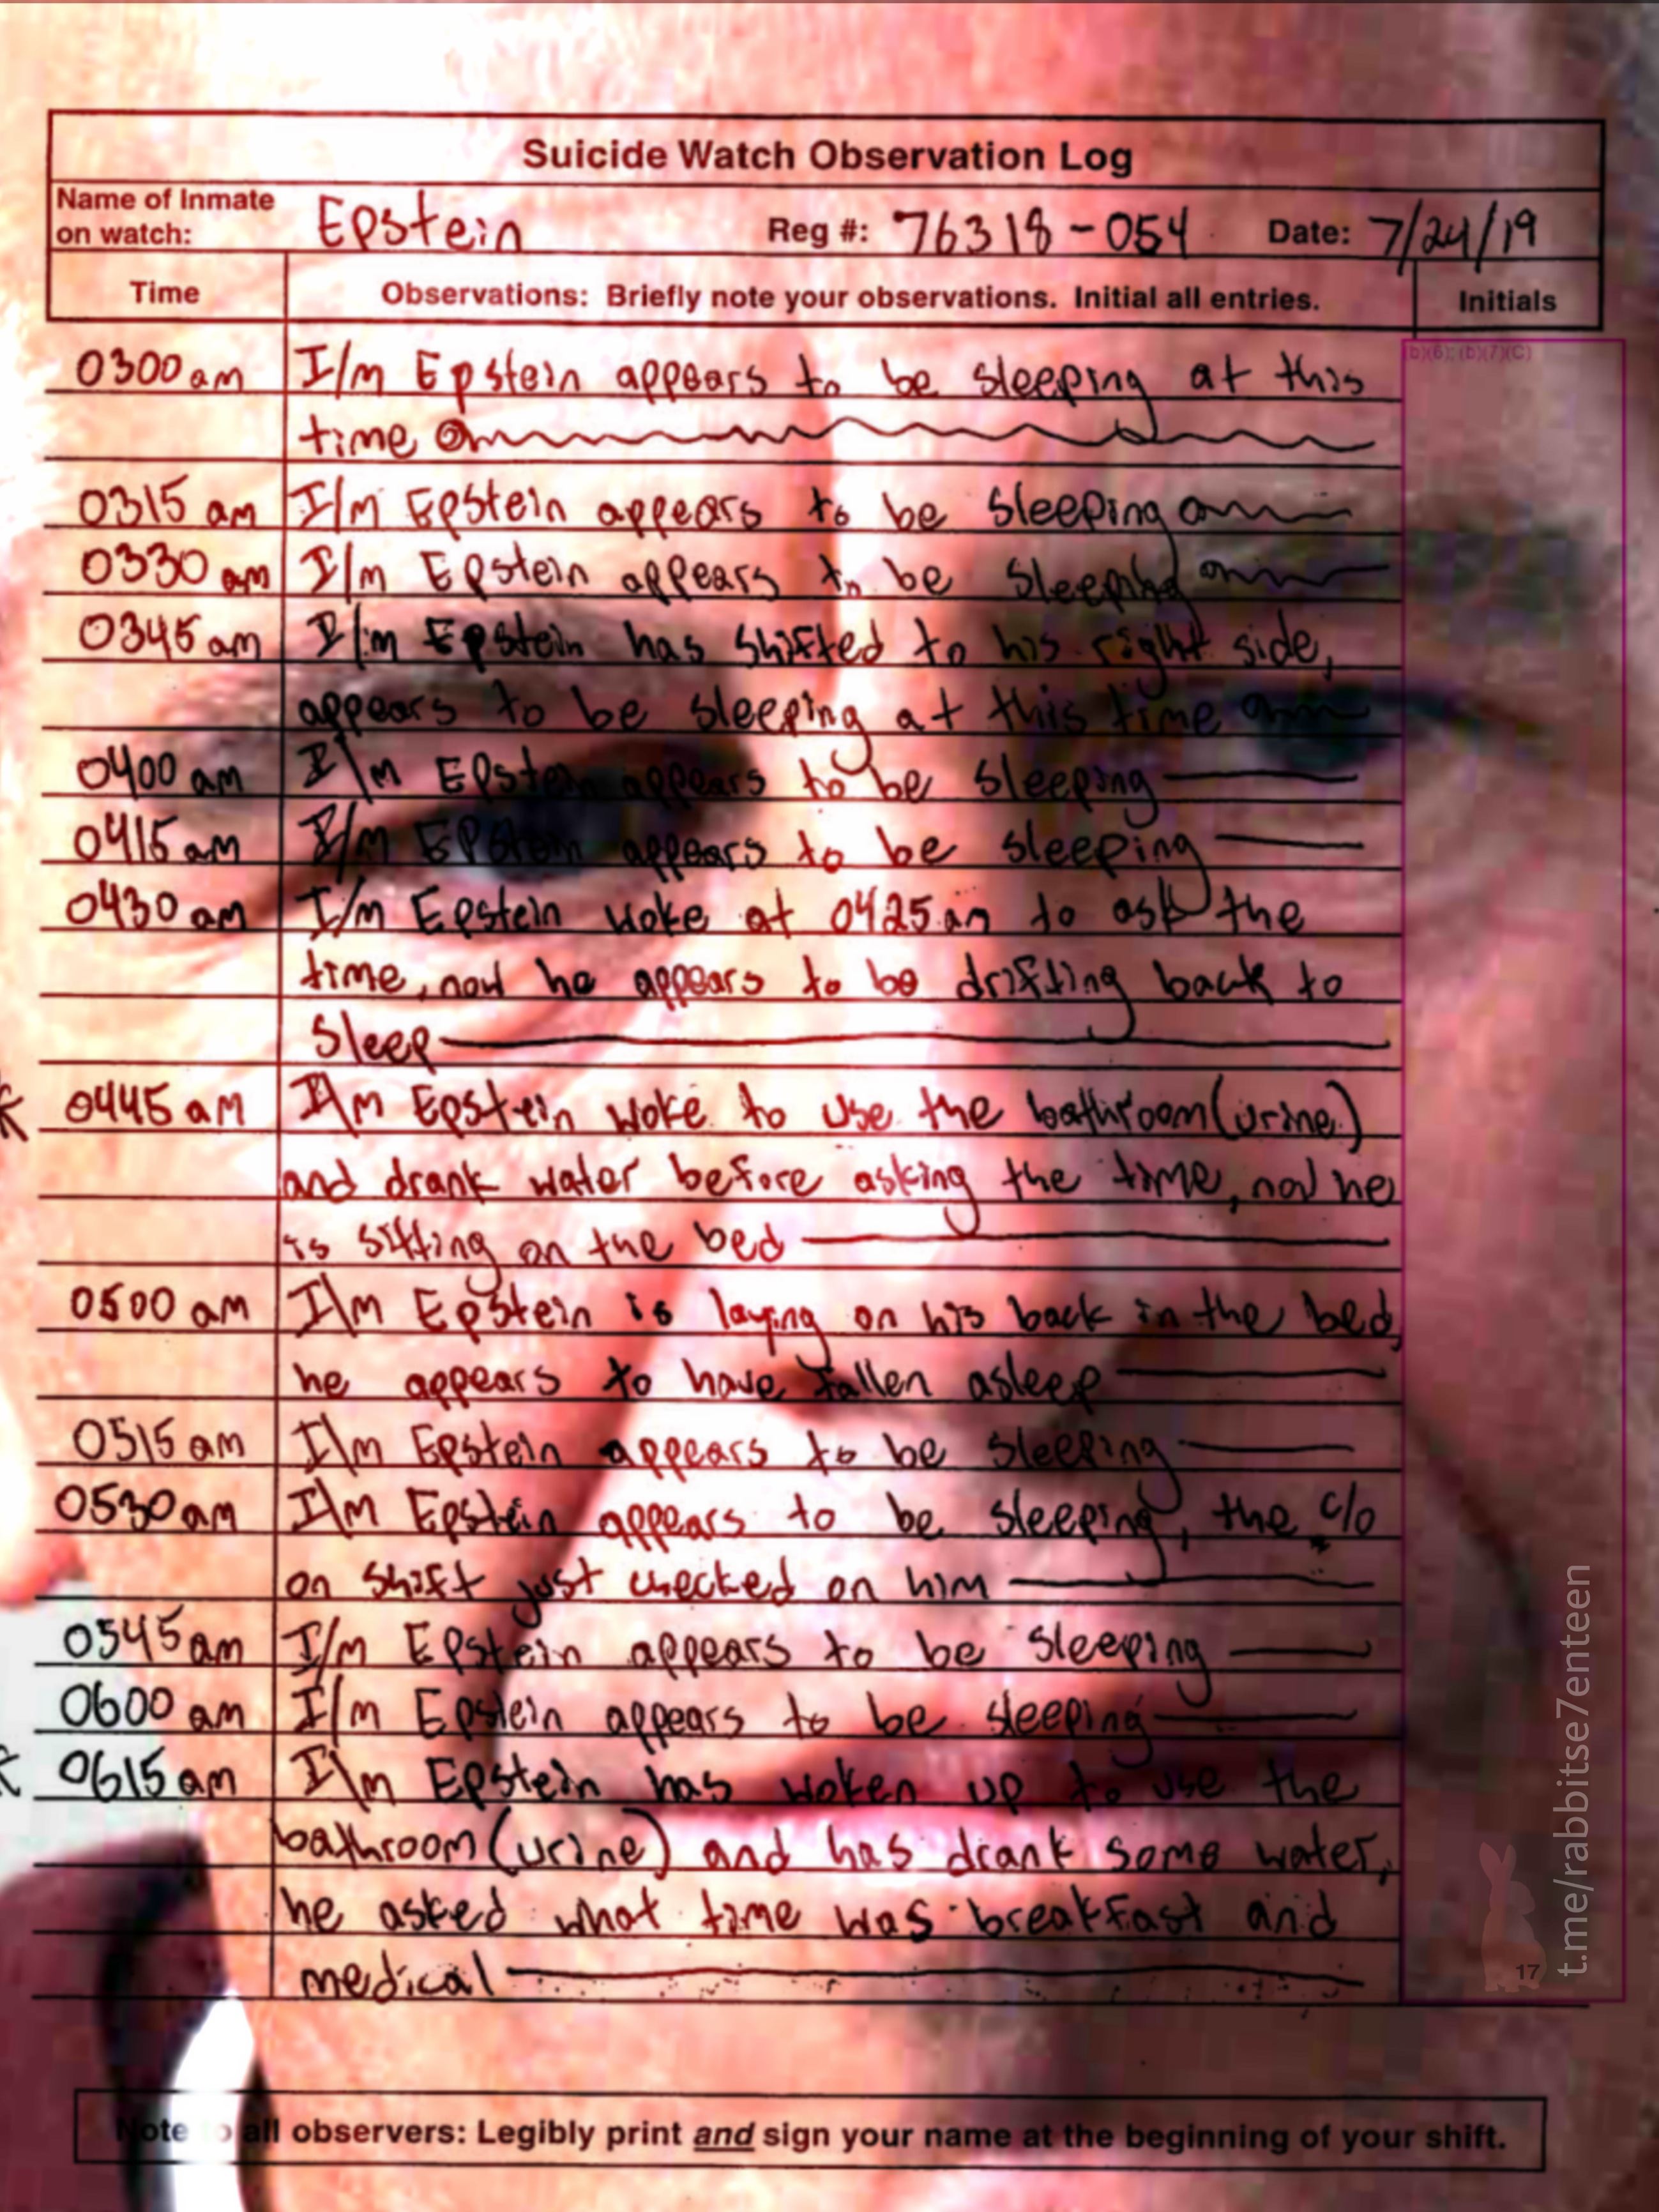 Suicide Watch Observation Log
Name of Inmate on watch: Epstein Reg #: 76318-054 Date: 7/24/19
Time Observations: Briefly note your observations. Initial all entries. Initials
(b)(6); (b)(7)(C)
0300 am I/m Epstein appears to be sleeping at this
time
0315 am I/m Epstein appears to be sleeping
0330 am I/m Epstein appears to be sleeping
0345 am I/m Epstein has shifted to his right side,
appears to be sleeping at this time
0400 am I/m Epstein appears to be sleeping
0415 am I/m Epstein appears to be sleeping
0430 am I/m Epstein woke at 0425 am to ask the
time, now he appears to be drifting back to
sleep
0445 am I/m Epstein woke to use the bathroom (urine)
and drank water before asking the time, now he
is sitting on the bed
0500 am I/m Epstein is laying on his back in the bed,
he appears to have fallen asleep
0515 am I/m Epstein appears to be sleeping
0530 am I/m Epstein appears to be sleeping, the c/o
on shift just checked on him
0545 am I/m Epstein appears to be sleeping
0600 am I/m Epstein appears to be sleeping
0615 am I/m Epstein has woken up to use the
bathroom (urine) and has drank some water,
he asked what time was breakfast and
medical
17
t.me/rabbitse7enteen
Note to all observers: Legibly print and sign your name at the beginning of your shift.